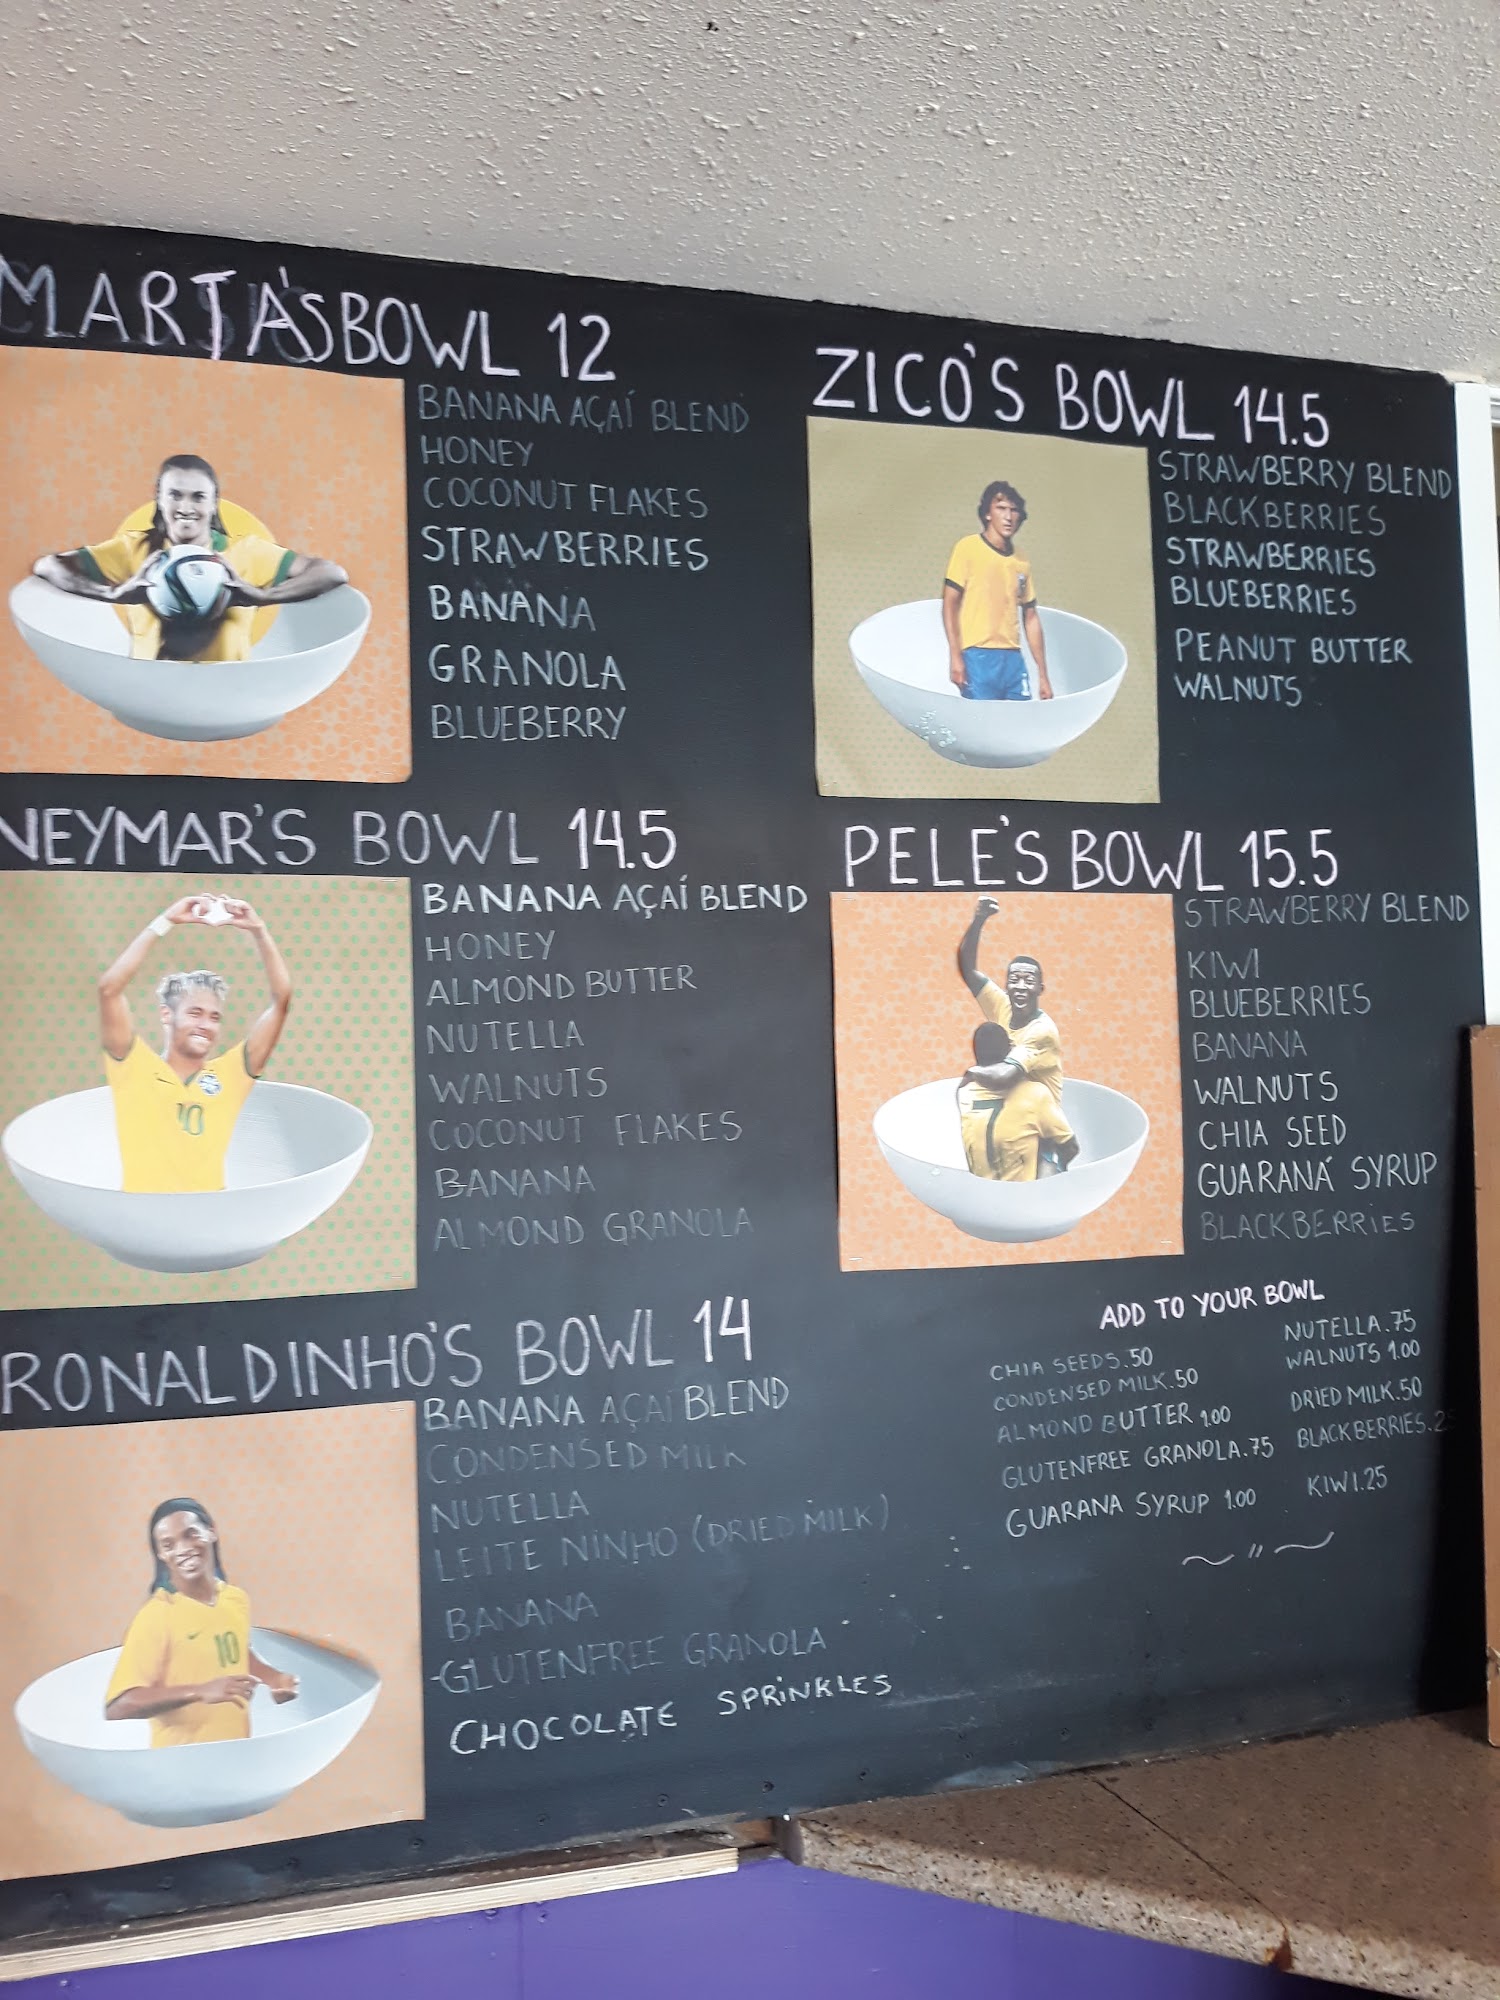 MARTA'S BOWL 12
BANANA AÇAÍ BLEND
HONEY
COCONUT FLAKES
STRAWBERRIES
BANANA
GRANOLA
BLUEBERRY
NEYMAR'S BOWL 14.5
BANANA AÇAÍ BLEND
HONEY
ALMOND BUTTER
NUTELLA
WALNUTS
COCONUT FLAKES
BANANA
ALMOND GRANOLA
10
RONALDINHO'S BOWL 14
BANANA AÇAÍ BLEND
CONDENSED MILK
NUTELLA
LEITE NINHO (DRIED MILK)
BANANA
GLUTENFREE GRANOLA
CHOCOLATE SPRINKLES
10
ZICO'S BOWL 14.5
STRAWBERRY BLEND
BLACKBERRIES
STRAWBERRIES
BLUEBERRIES
PEANUT BUTTER
WALNUTS
PELE'S BOWL 15.5
STRAWBERRY BLEND
KIWI
BLUEBERRIES
BANANA
WALNUTS
CHIA SEED
GUARANÁ SYRUP
BLACKBERRIES
7
ADD TO YOUR BOWL
CHIA SEEDS .50
CONDENSED MILK .50
ALMOND BUTTER 1.00
GLUTENFREE GRANOLA .75
GUARANA SYRUP 1.00
NUTELLA .75
WALNUTS 1.00
DRIED MILK .50
BLACKBERRIES
KIWI .25